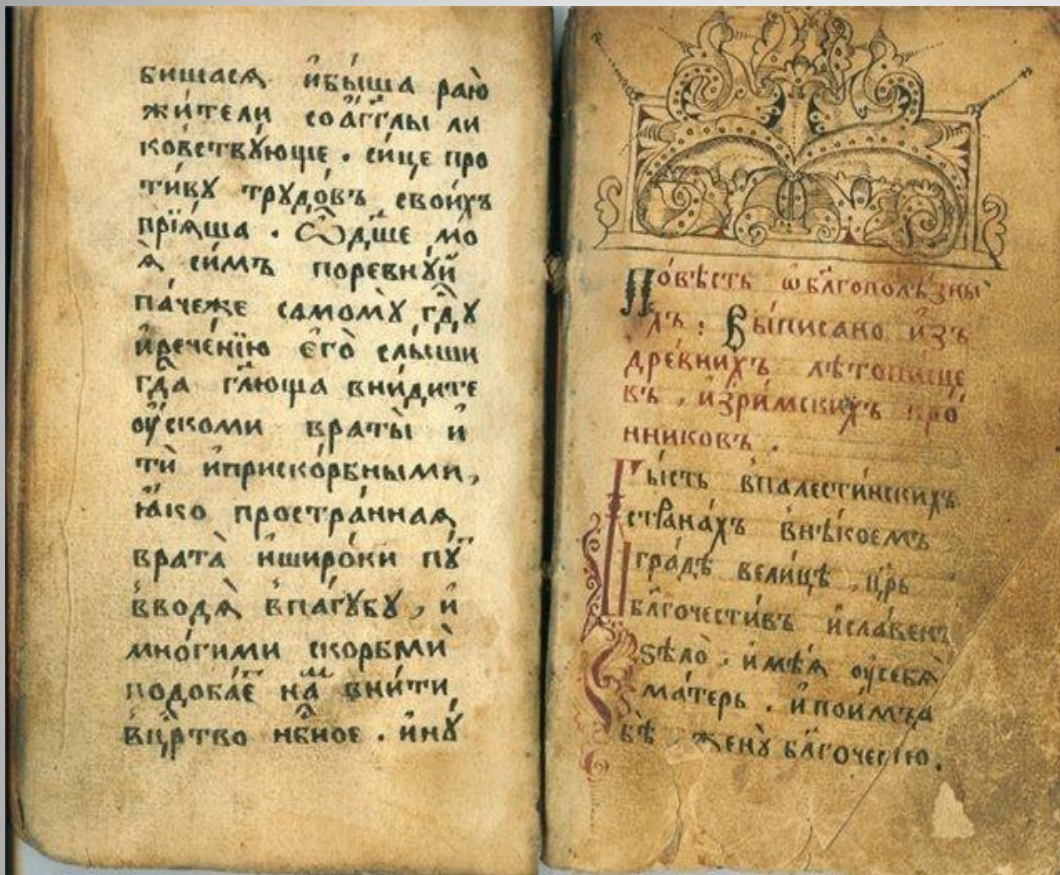 бишасѧ и҆бы́ша раю̀
жи́тели соа҆́гг҃лы ли
ковствꙋ́юще . си́це про
ти́вꙋ трꙋдо́въ свои́хъ
прїѧ́ша . Ѽдш҃е мо
ѧ̀ си́мъ поревнꙋ́й
па́чеже самомꙋ̀ гдⷭ҇ꙋ
и҆рече́нїю є҆гѡ̀ слы́ши
гдⷭ҇а гл҃юща вни́дите
оу҆́скоми враты̀ и҆
ти̑ и҆приско́рбными,
ꙗ҆́ко простра́ннаѧ
врата̀ и҆широ́ки пꙋⷮ
вводѧ̀ впа́гꙋбꙋ , и҆
мно́гими скорбмѝ
подоба́еⷮ на́ⷨ вни́ти
вцрⷭ҇тво нбⷭ҇ное . и҆нꙋ́
По́вѣсть ѡ҆бл҃гополѣ́зны
хъ : Вы́писано и҆зъ
дре́внихъ лѣтопи́сце
въ , и҆зри́мскихъ кро́
нниковъ .
Бы́сть впалести́нскихъ
страна́хъ внѣ́коемъ
гра́дѣ вели́цѣ , цр҃ь
бл҃гочести́въ и҆сла́венъ
ѕѣлѡ̀ . и҆мѣ́ѧ оу҆себѧ̀
ма́терь . и҆пои́мъ
бѣ женꙋ̀ бл҃гочести́ю .